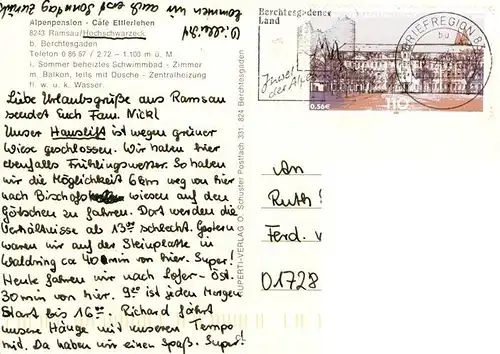 kommen wir auch erst Sonntag zurück
Alpenpension - Café Ettlerlehen
8243 Ramsau/Hochschwarzeck
b. Berchtesgaden
Telefon 0 86 57 / 2 72 - 1.100 m ü. M
i. Sommer beheiztes Schwimmbad - Zimmer
m. Balkon, teils mit Dusche - Zentralheizung
fl. w. u. k. Wasser.
Liebe Urlaubsgrüße aus Ramsau
sendet Euch Fam. Nickl
Unser Hauslift ist wegen grüner
Wiese geschlossen. Wir haben hier
ebenfalls Frühlingswetter. So haben
wir die Möglichkeit 6km weg von hier
nach Bischofswiesen auf den
Götschen zu fahren. Dort werden die
Verhältnisse ab 13⁰⁰ schlecht. Gestern
waren wir auf der Steinplatte in
Waidring ca 40min von hier. Super!
Heute fahren wir nach Lofer-Öst.
30min von hier. 9⁰⁰ ist jeden Morgen
Start bis 16⁰⁰. Richard fährt
unsere Hänge mit unserem Tempo
mit. Da haben wir einen Spaß. Super!
RUPERTI-VERLAG O. Schuster Postfach 331, 824 Berchtesgaden
Berchtesgadener
Land
Juwel
der Alpen
BRIEFREGION 8
0,56€
110
An
Ruth
Ferd. v
01728